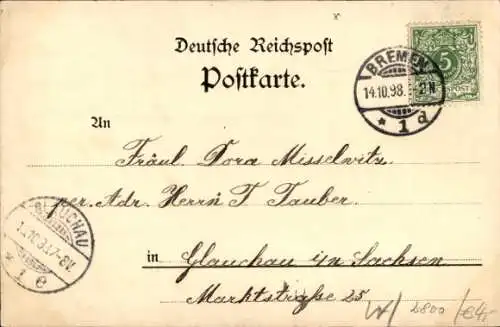 Deutsche Reichspost
Postkarte.
5
BREMEN
14.10.98. 2-N
* 1 d
An
Fräul. Dora Misselwitz
per. Adr. Herrn T Tauber
in Glauchau in Sachsen
Marktstraße 25
GLAUCHAU
* 1 e
2800